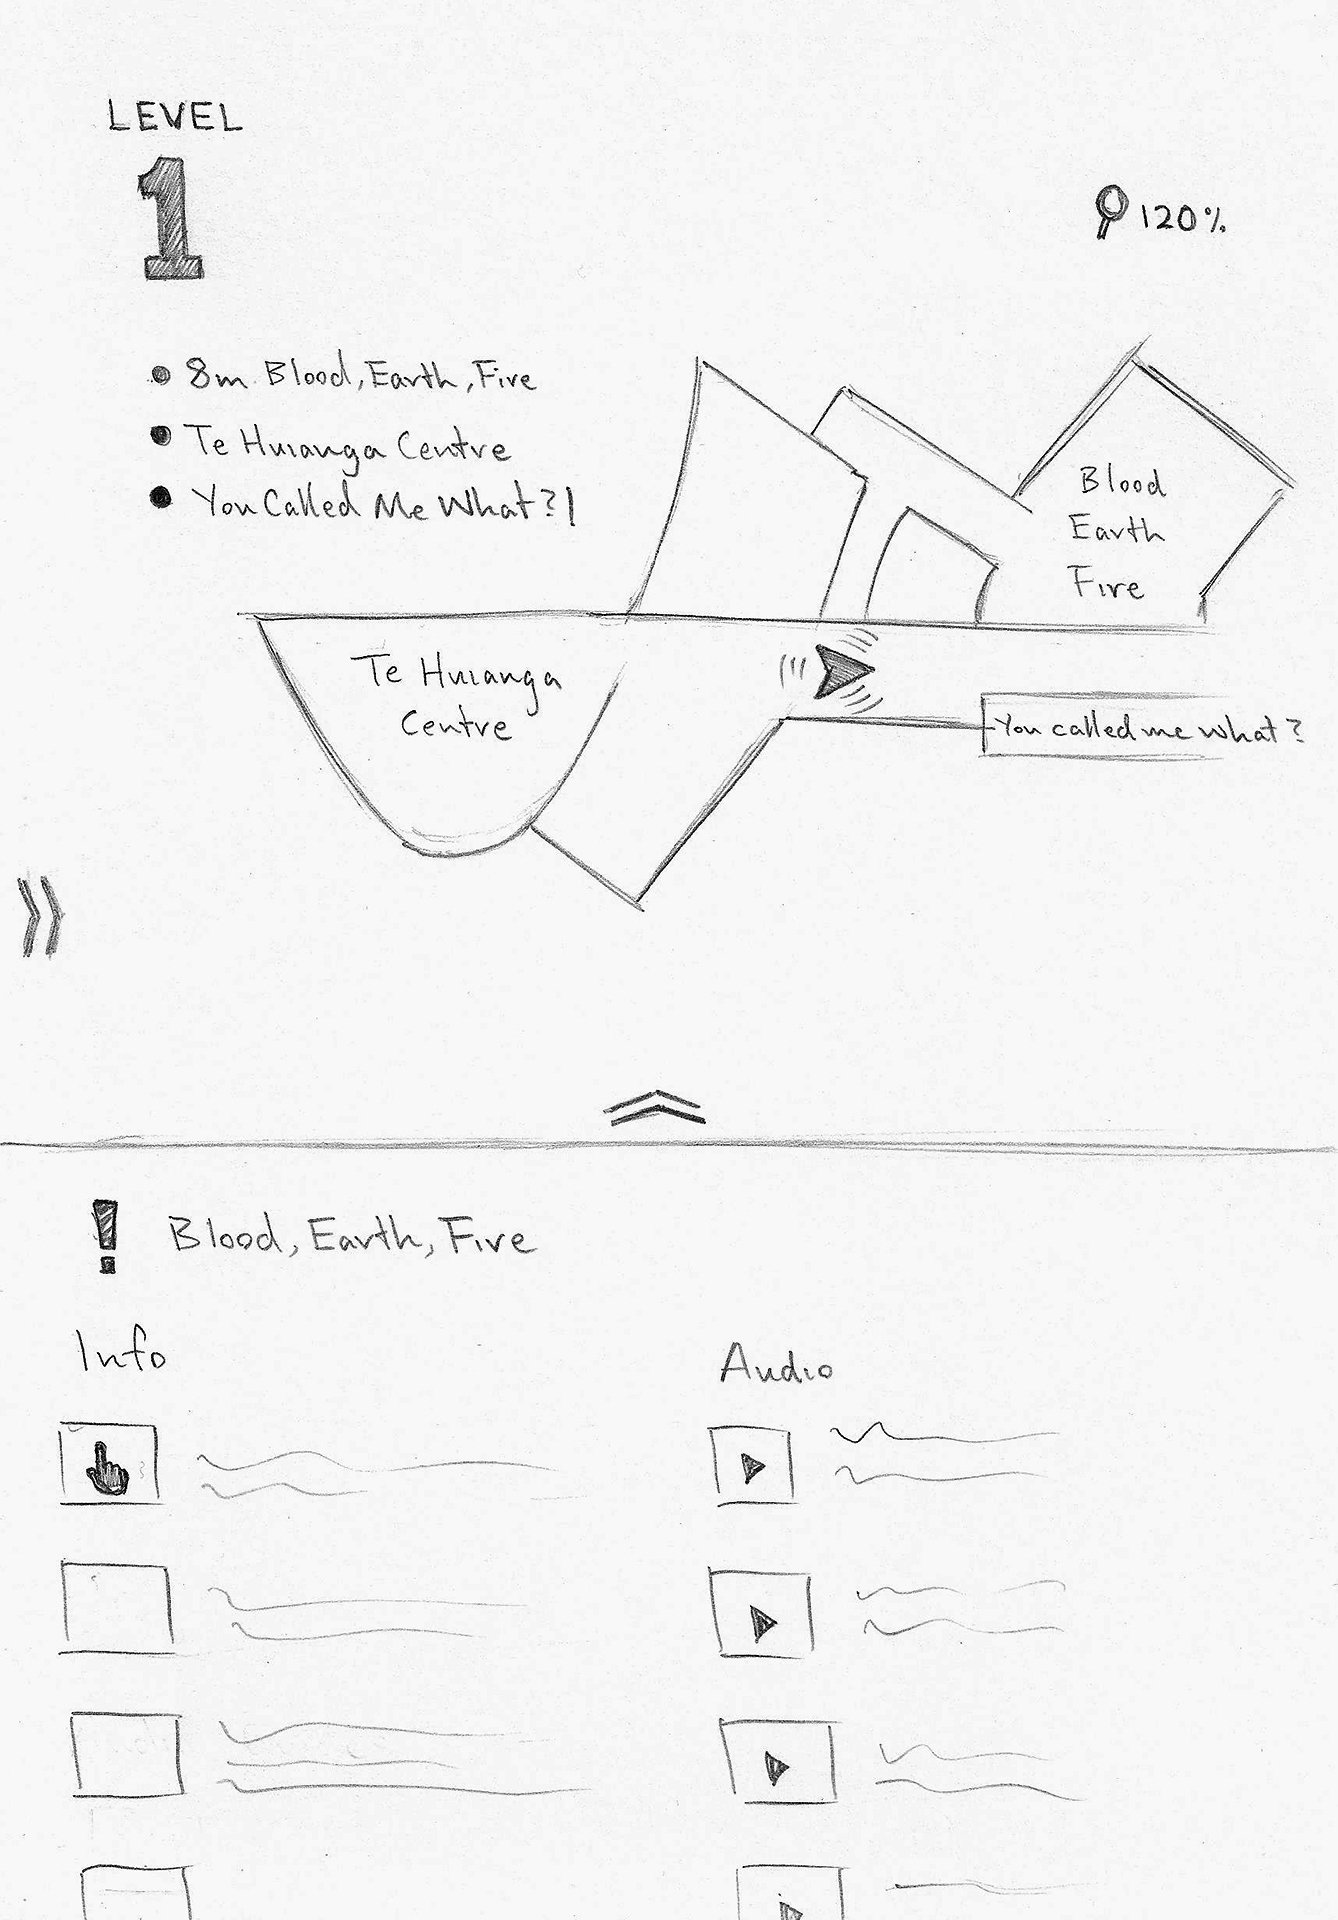 LEVEL
1
120%
8m Blood, Earth, Fire
Te Huianga Centre
You Called Me What?!
Blood
Earth
Fire
Te Huianga
Centre
You called me what?
! Blood, Earth, Fire
Info
Audio